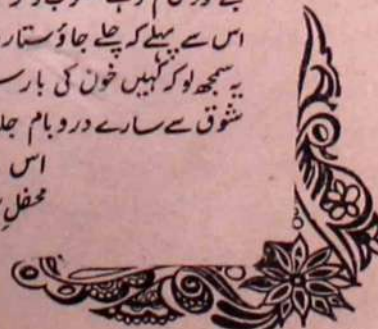 اس سے پہلے کہ چلے جاؤ ستار
یہ سمجھ لو کہ کہیں خون کی بارس
شوق سے سارے در و بام جلا
اس
محفلِ